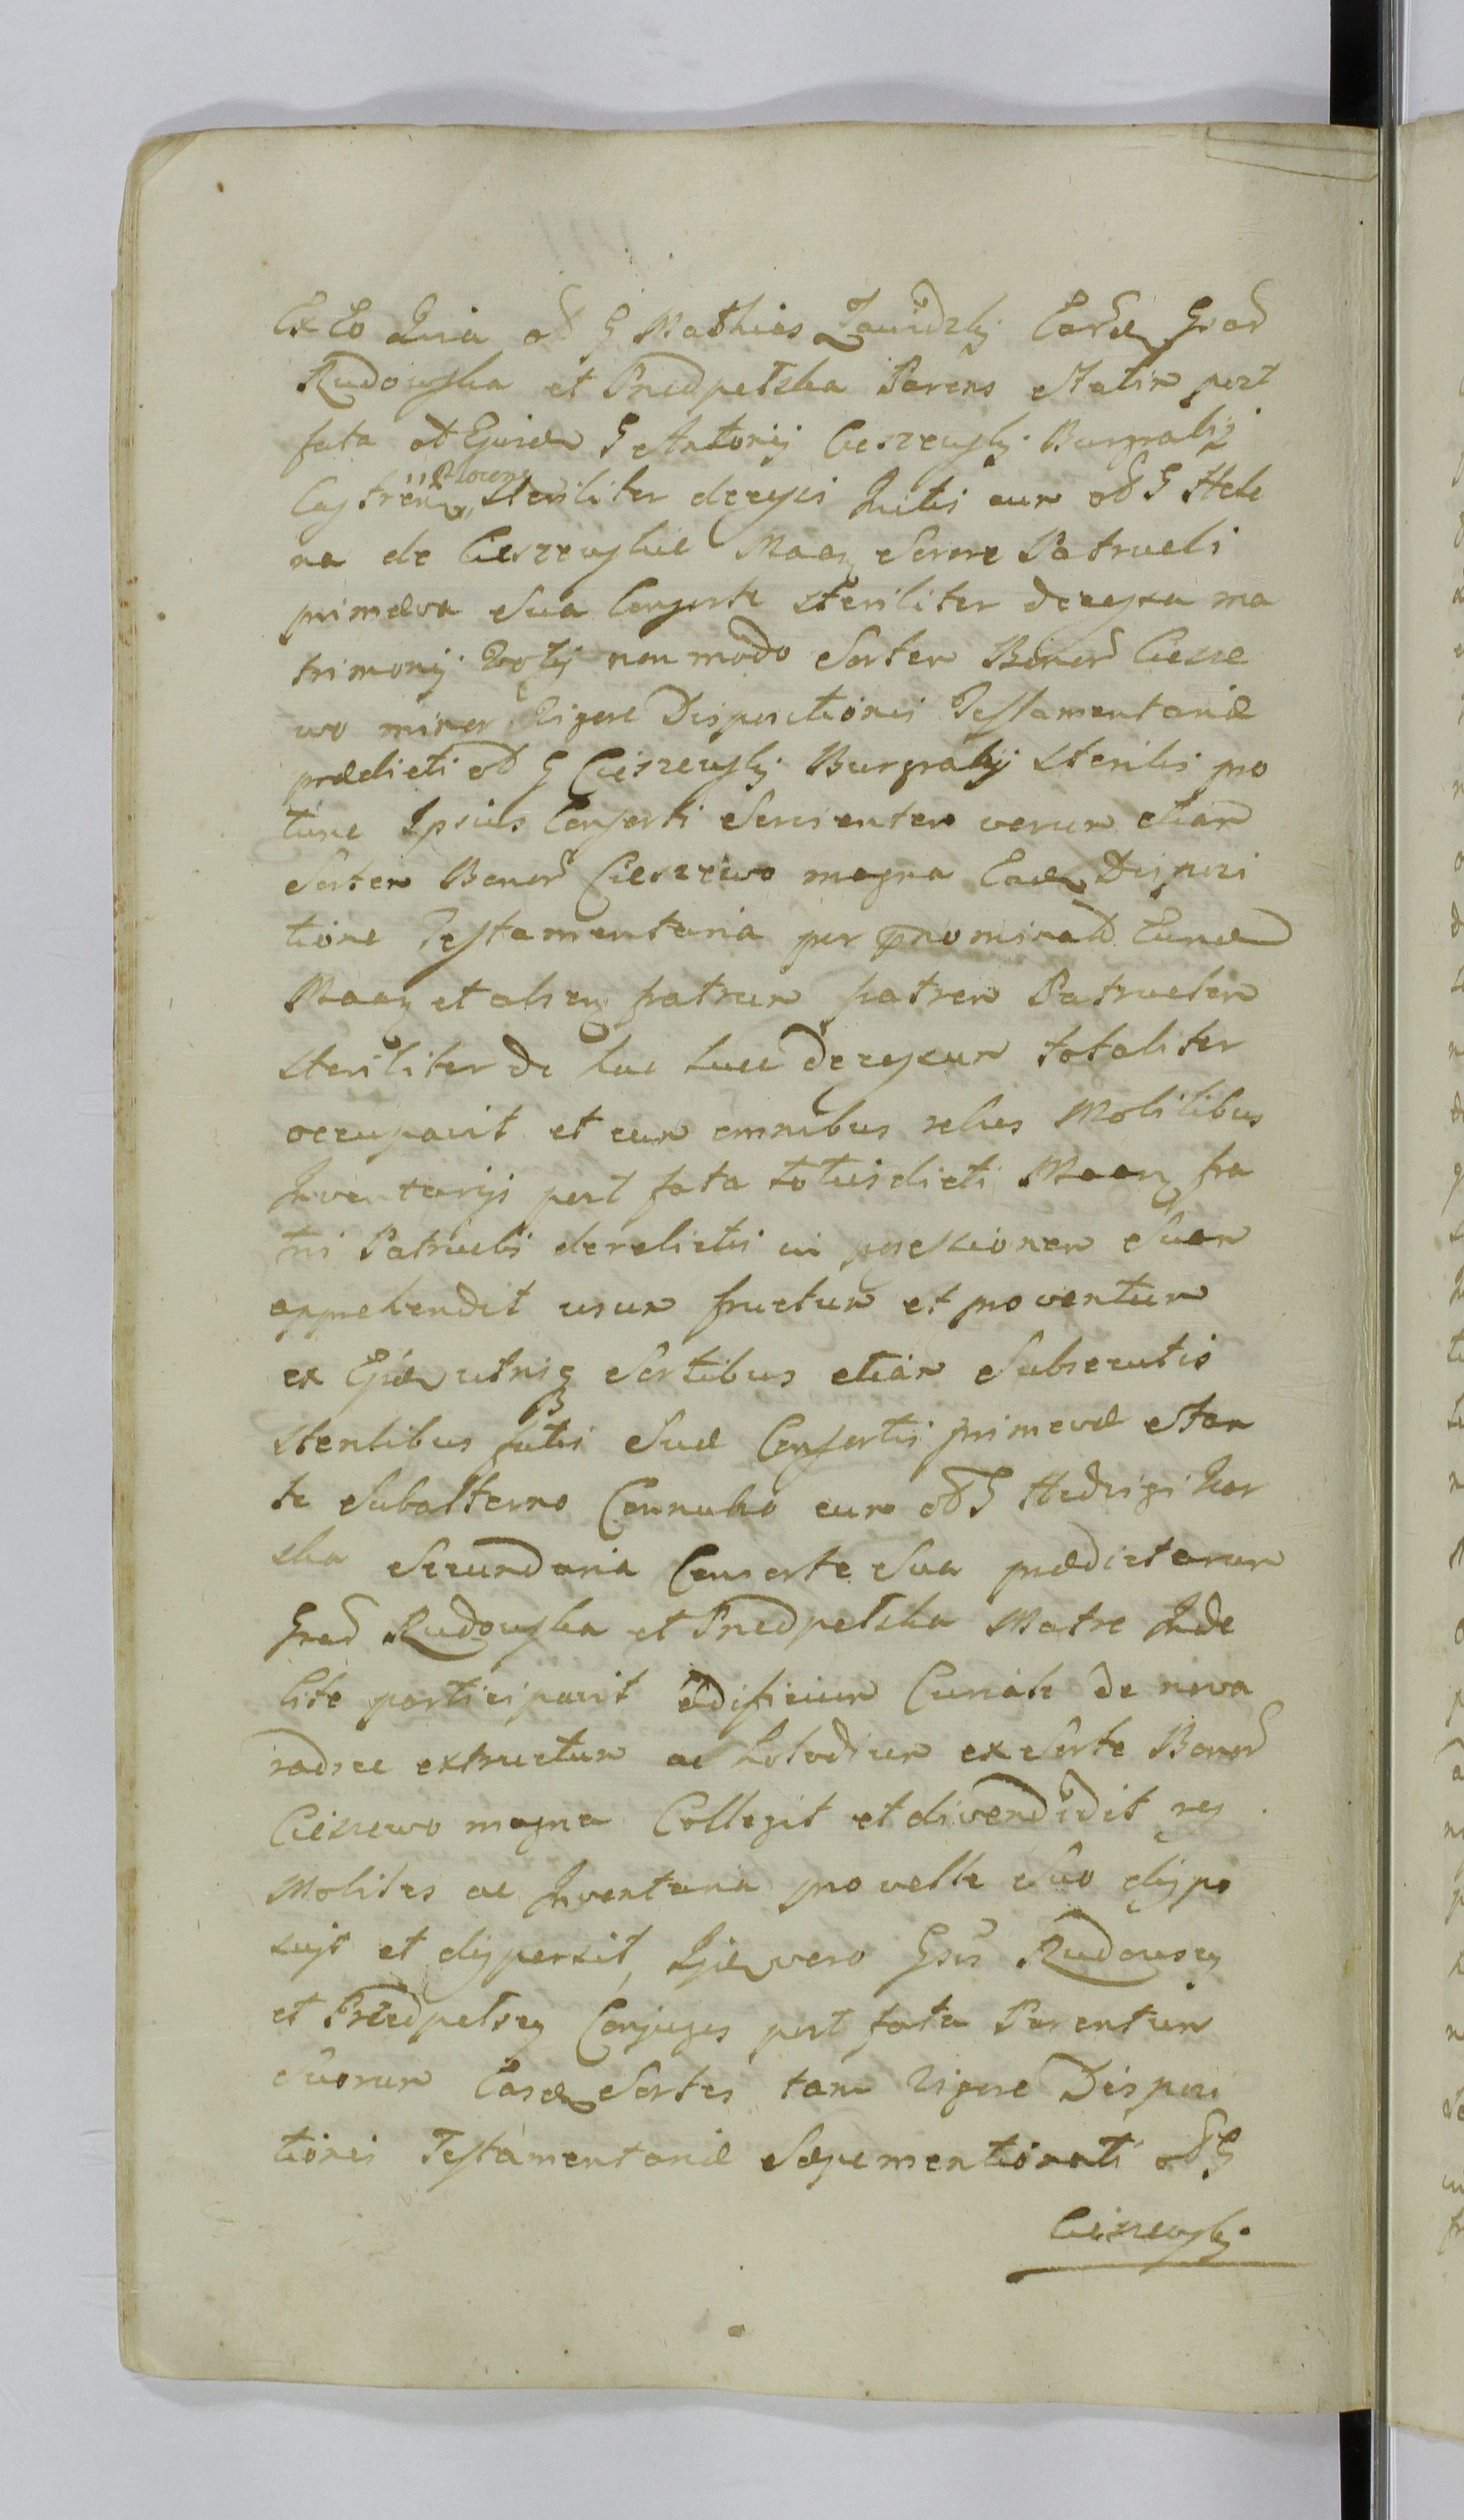 Ex Eo Quia ol G Mathias Zawidzky Earūd Grad
Rudowska et Przedpelska Parens Statim post
fata ol Ejusdē G Antonij Cieszewsky Burgrabij
Castren, Plocens Steriliter decessi Initi cum ol G Hele
na de Cieszewskie Maaz Sorore Patrueli
primæva Sua Consorte Steriliter decessa ma
trimonij Votij non modo Sortem Bonord Ciesze
wo minor Vigore Dispositionis Testamentariæ
prædicti ol G Cieszewsky Burgrabij Sterilis pro
tunc Ipsius Consorti Servientem verum etiam
Sortem Bonord Cieszewo magna Eadē Disposi
tione Testamentaria per pnominatd Eundē
Maaz et olseū fratrum fratrem Patruelem
Steriliter de hac luce decessum totaliter
occupavit et cum omnibus rebus Mobilibus
Inventarijs post fata totius dicti Maaz fra
tris Patruelis derelictis in possessionem Suam
apprehendit usum fructum et proventum
ex Ejsdē utrisq Sortibus etiam Subsecutis
Sterilibus fatis Suæ Consortis primevæ Stan
te Subalterno Connubio cum ol G Hedvigi Kar
ska Secundaria Consorte Sua prædictarum
Grad Rudowska et Przedpelska Matre Inde
bite participavit ædificium Curiale de nova
radice extructum ac Lolodium ex Sorte Bonord
Cieszewo magna Collegit et divendidit res
Mobiles ac Inventaria pro velle Suo dispo
suit et dispersit, Ijdē vero Gsi Rudowscy
et Przedpelscy Conjuges post fata Parentum
Suorum Easdē Sortes tam Vigore Disposi
tionis Testamentariæ Sæpementionati ol G
Cieszewsky